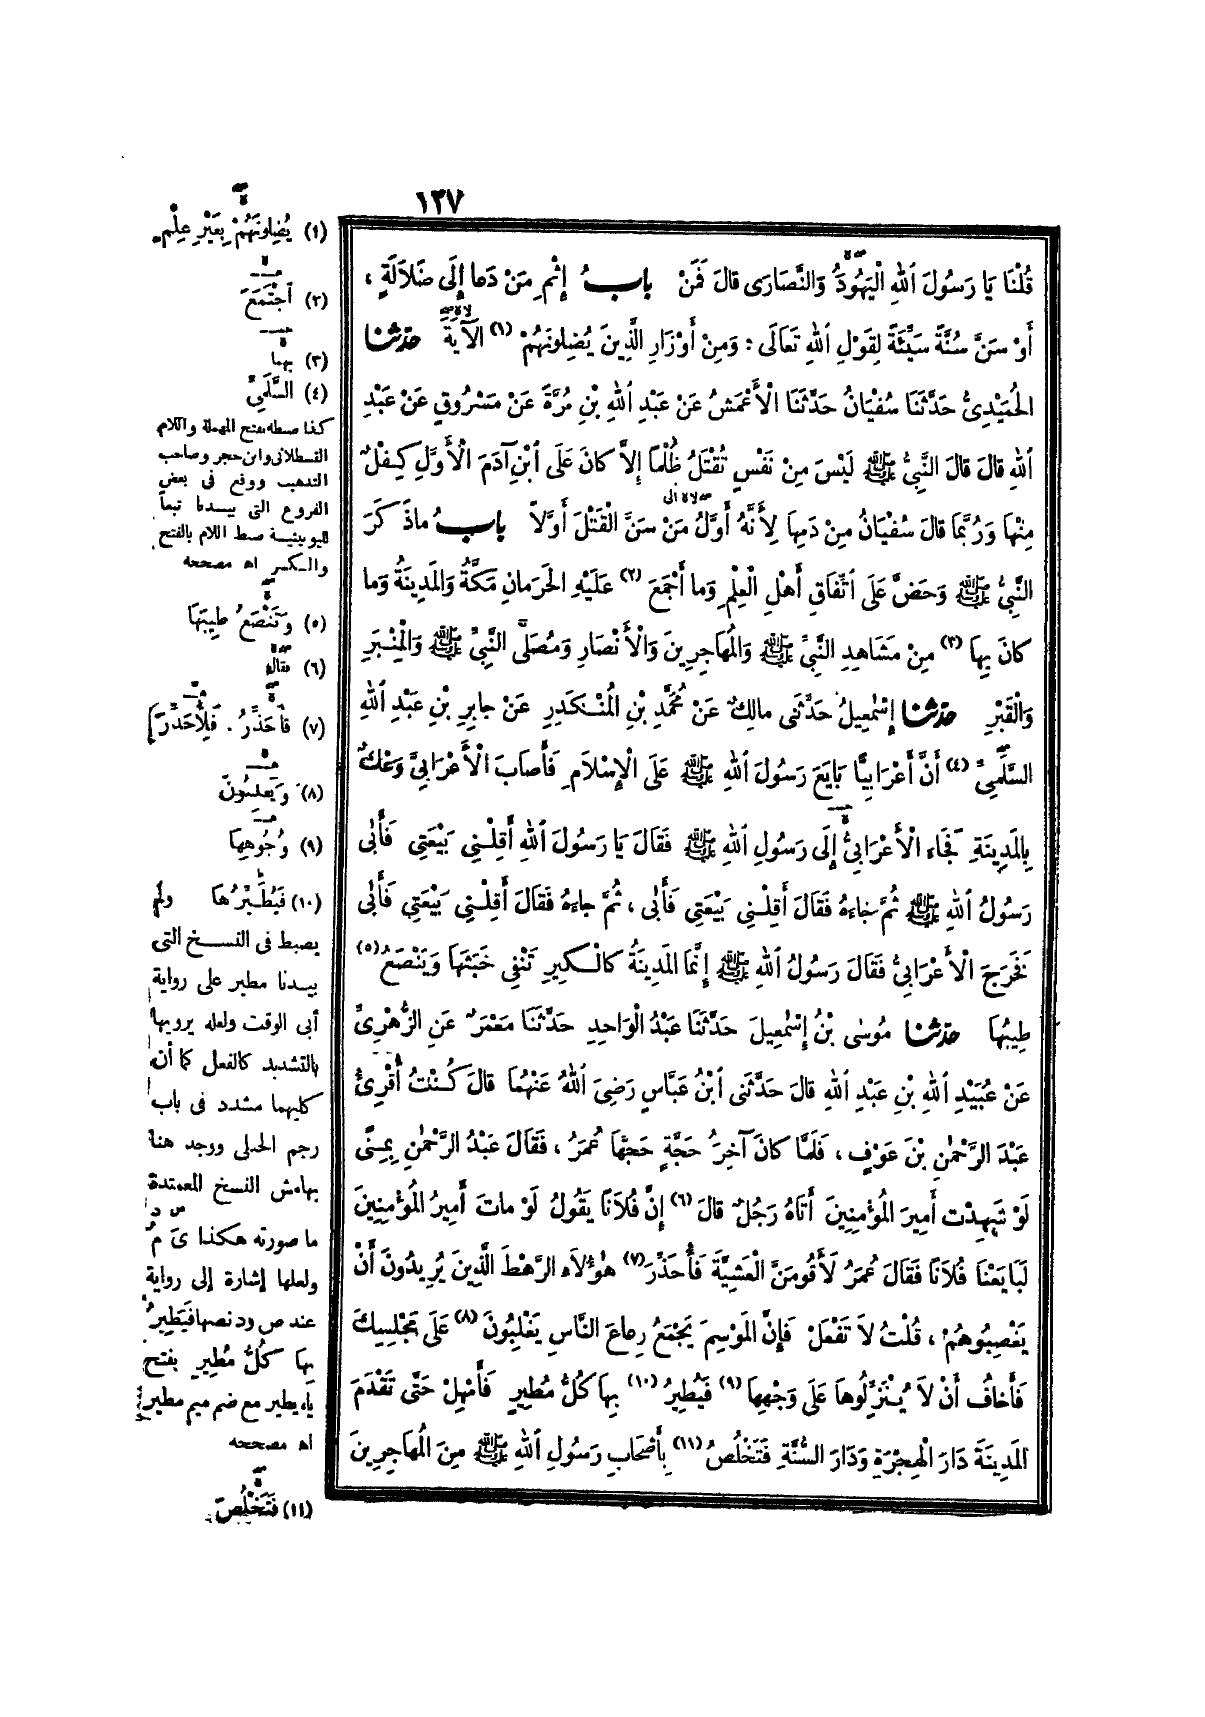 ١٢٧
قُلْنَا يَا رَسُولَ اللهِ الْيَهُودُ وَالنَّصَارَى قالَ فَمَنْ بابُ إِثْمِ مَنْ دَعا إِلَى ضَلاَلَةٍ ،
أَوْ سَنَّ سُنَّةً سَيِّئَةً لِقَوْلِ اللهِ تَعَالَى : وَمِنْ أَوْزَارِ الَّذِينَ يُضِلونَهُمْ (١) الآيَةَ حدثنا
الحُمَيْدِيُّ حَدَّثَنَا سُفْيَانُ حَدَّثَنَا الْأَعْمَشُ عَنْ عَبْدِ اللهِ بْنِ مُرَّةَ عَنْ مَسْرُوقٍ عَنْ عَبْدِ
اللهِ قالَ قالَ النَّبِيُّ ﷺ لَيْسَ مِنْ نَفْسٍ تُقْتَلُ ظُلْماً إِلاَّ كانَ عَلَى ابْنِ آدَمَ الْأَوَّلِ كِفْلٌ
مِنْهَا وَرُبَّمَا قالَ سُفْيَانُ مِنْ دَمِها لِأَنَّهُ أَوَّلُ مَنْ سَنَّ الْقَتْلَ أَوَّلاً بابُ ماذَكَرَ
النَّبِيُّ ﷺ وَحَضَّ عَلَى اتِّفَاقِ أَهْلِ الْعِلْمِ وَما أَجْمَعَ (٢) عَلَيْهِ الحَرَمانِ مَكَّةُ وَالمَدِينَةُ وَما
كانَ بِها (٣) مِنْ مَشَاهِدِ النَّبِيِّ ﷺ وَالمُهَاجِرِينَ وَالْأَنْصَارِ وَمُصَلَّى النَّبِيِّ ﷺ وَالْمِنْبَرِ
وَالْقَبْرِ حدثنا إِسْمعِيلُ حَدَّثَنى مالِكٌ عَنْ مُحَمَّدِ بْنِ الْمُنْكَدِرِ عَنْ جابِرِ بْنِ عَبْدِ اللهِ
السَّلَمِيِّ (٤) أَنَّ أَعْرَابِيًّا بَايَعَ رَسُولَ اللهِ ﷺ عَلَى الْإِسْلاَمِ فَأَصَابَ الْأَعْرَابِيَّ وَعْكٌ
بِالمَدِينَةِ فَجَاءَ الْأَعْرَابِيُّ إِلَى رَسُولِ اللهِ ﷺ فَقَالَ يَا رَسُولَ اللهِ أَقِلْنِي بَيْعَتِي فَأَبٰى
رَسُولُ اللهِ ﷺ ثُمَّ جاءَهُ فَقَالَ أَقِلْنِي بَيْعَتِي فَأَبٰى ، ثُمَّ جاءَهُ فَقَالَ أَقِلْنِي بَيْعَتِي فَأَبٰى
فَخَرَجَ الْأَعْرَابِيُّ فَقَالَ رَسُولُ اللهِ ﷺ إِنَّمَا المَدِينَةُ كالْكِيرِ تَنْفِى خَبَثَهَا وَيَنْصَعُ (٥)
طِيبُهَا حدثنا مُوسى بْنُ إِسْمعِيلَ حَدَّثَنَا عَبْدُ الْوَاحِدِ حَدَّثَنَا مَعْمَرٌ عَنِ الزُّهْرِيِّ
عَنْ عُبَيْدِ اللهِ بْنِ عَبْدِ اللهِ قالَ حَدَّثَنى ابْنُ عَبَّاسٍ رَضِىَ اللهُ عَنْهُمَا قالَ كُنْتُ أُقْرِئُ
عَبْدَ الرَّحْمٰنِ بْنَ عَوْفٍ ، فَلَمَّا كانَ آخِرُ حَجَّةٍ حَجَّهَا عُمَرُ ، فَقَالَ عَبْدُ الرَّحْمٰنِ بِمِنًى
لَوْ شَهِدْتَ أَمِيرَ المُؤْمِنِينَ أَتَاهُ رَجُلٌ قالَ (٦) إِنَّ فُلاَنًا يَقُولُ لَوْ ماتَ أَمِيرُ المُؤْمِنِينَ
لَبَايَعْنَا فُلاَنًا فَقَالَ عُمَرُ لَأَقُومَنَّ الْعَشِيَّةَ فَأُحَذِّرَ (٧) هٰؤُلاَءِ الرَّهْطَ الَّذِينَ يُرِيدُونَ أَنْ
يَغْصِبُوهُمْ ، قُلْتُ لاَ تَفْعَلْ فَإِنَّ المَوْسِمَ يَجْمَعُ رِعاعَ النَّاسِ يَغْلِبُونَ (٨) عَلَى مَجْلِسِكَ
فَأَخافُ أَنْ لاَ يُنَزِّلُوها عَلَى وَجْهِهَا (٩) فَيُطِيرُ (١٠) بِها كُلُّ مُطِيرٍ فَأَمْهِلْ حَتَّى تَقْدَمَ
المَدِينَةَ دَارَ الْهِجْرَةِ وَدَارَ السُّنَّةِ فَتَخْلُصُ (١١) بِأَصْحَابِ رَسُولِ اللهِ ﷺ مِنَ المُهَاجِرِينَ
(١) يُضِلونَهُمْ بِغَيْرِ عِلْمٍ
(٢) اجْتَمَعَ
(٣) بهما
(٤) السَّلَمِيِّ
كذا ضبطه بفتح المهملة واللام
القسطلانى وابن حجر وصاحب
التذهيب ووقع فى بعض
الفروع التى بيدنا تبعاً
لليونينية ضبط اللام بالفتح
والكسر اه مصححه
(٥) وَتَنْصَعُ طِيبَهَا
(٦) فقال
(٧) فأحذرُ . فَلِأُحَذِّرَ
(٨) وَيَغلبُونَ
(٩) وُجُوهِها
(١٠) فَيُطَيِّرُها ولم
يضبط فى النسخ التى
بيدنا مطير على رواية
أبى الوقت ولعله يرويها
بالتشديد كالفعل كما أن
كليهما مشدد فى باب
رجم الحبلى ووجد هنا
بهامش النسخ المعتمدة
ما صورته هكذا
ولعلها إشارة إلى رواية
عند ص ود نصها فَيَطِيرُ
بِهَا كُلُّ مُطِيرٍ بفتح
ياء يطير مع ضم ميم مطير
اه مصححه
(١١) فَتَخْلُصَ